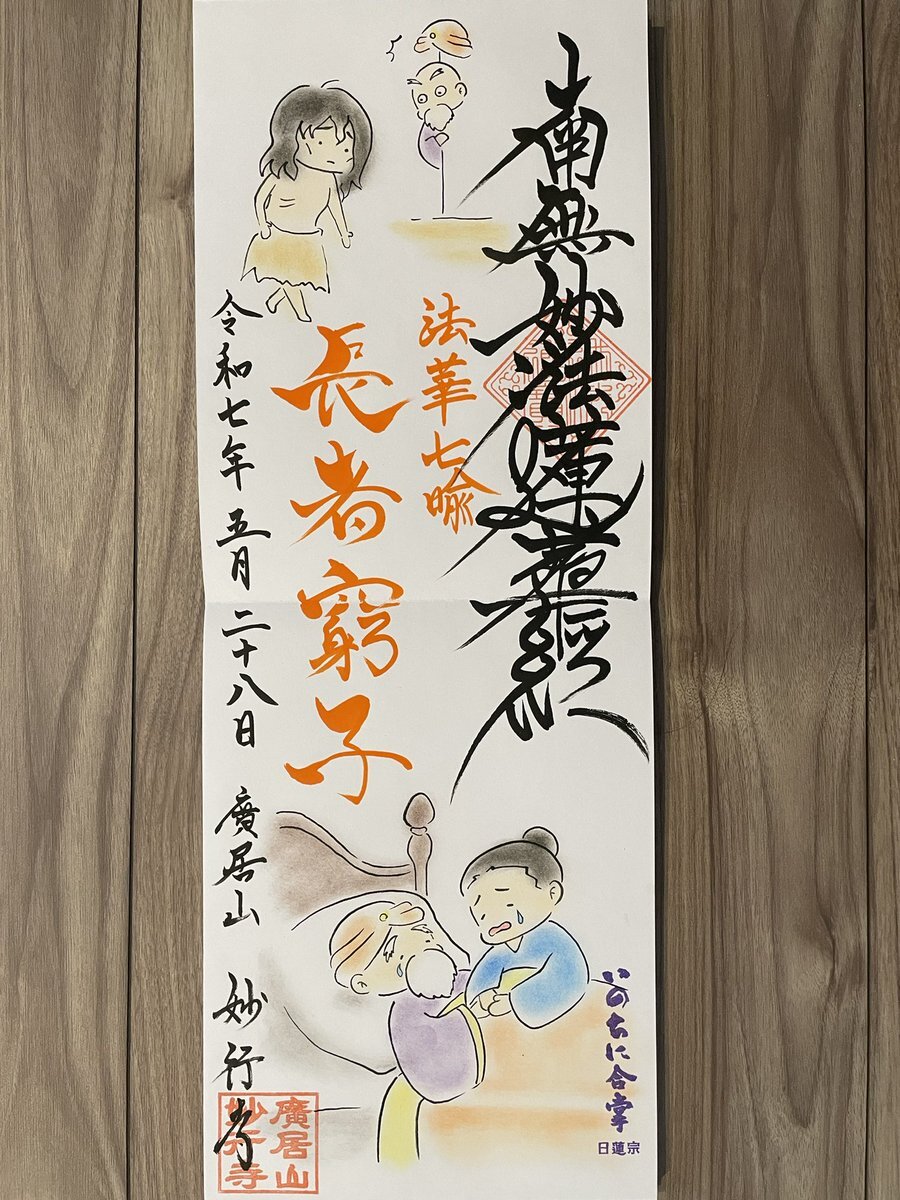 南無妙法蓮華経
法華七喩
長者窮子
令和七年 五月 二十八日 廣居山 妙行寺
廣居山
妙行寺
いのちに合掌
日蓮宗